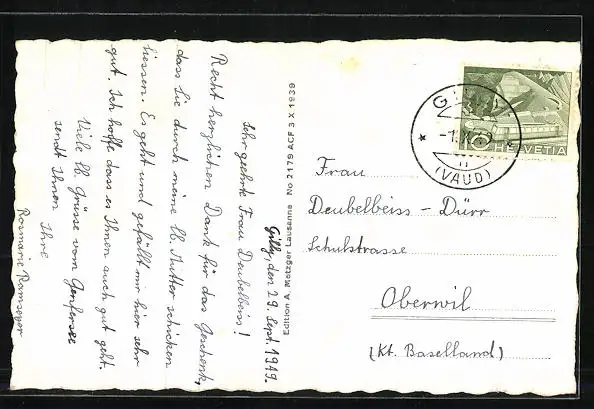 Gilly, den 29. Sept. 1949.
Sehr geehrte Frau Deubelbeiss!
Recht herzlichen Dank für das Geschenk,
dass Sie durch meine lb. Mutter schicken
liessen. Es geht und gefällt mir hier sehr
gut. Ich hoffe dass es Ihnen auch gut geht.
Viele lb. Grüsse vom Genfersee
sendt Ihnen
Ihre
Rosmarie Ramseyer
Edition A. Metzger Lausanne No 2179 ACF 3 X 1939
HELVETIA
10
(VAUD)
Frau
Deubelbeiss - Dürr
Schulstrasse
Oberwil
(Kt. Baselland)